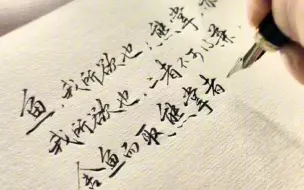 鱼,我所欲也,熊掌,亦
我所欲也,二者不可以兼,
舍鱼而取熊掌者